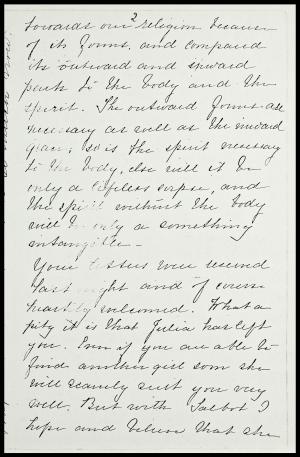 2
towards our religion because
of its forms, and compared
its outward and inward
parts to the body and the
spirit. The outward forms are
necessary as well as the inward
grace; so is the spirit necessary
to the body, else will it be
only a lifeless corpse, and
the spirit without the body
will be only a something
intangible —
Your letters were received
last night and of course
heartily welcomed. What a
pity it is that Julia has left
you. Even if you are able to
find another girl soon she
will scarcely suit you very
well. But with Talbot I
hope and believe that she